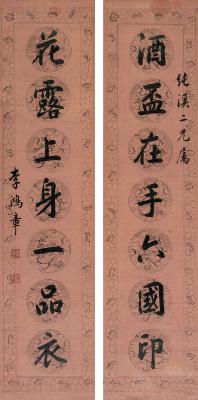 純溪二兄屬
酒盃在手六國印
花露上身一品衣
李鴻章